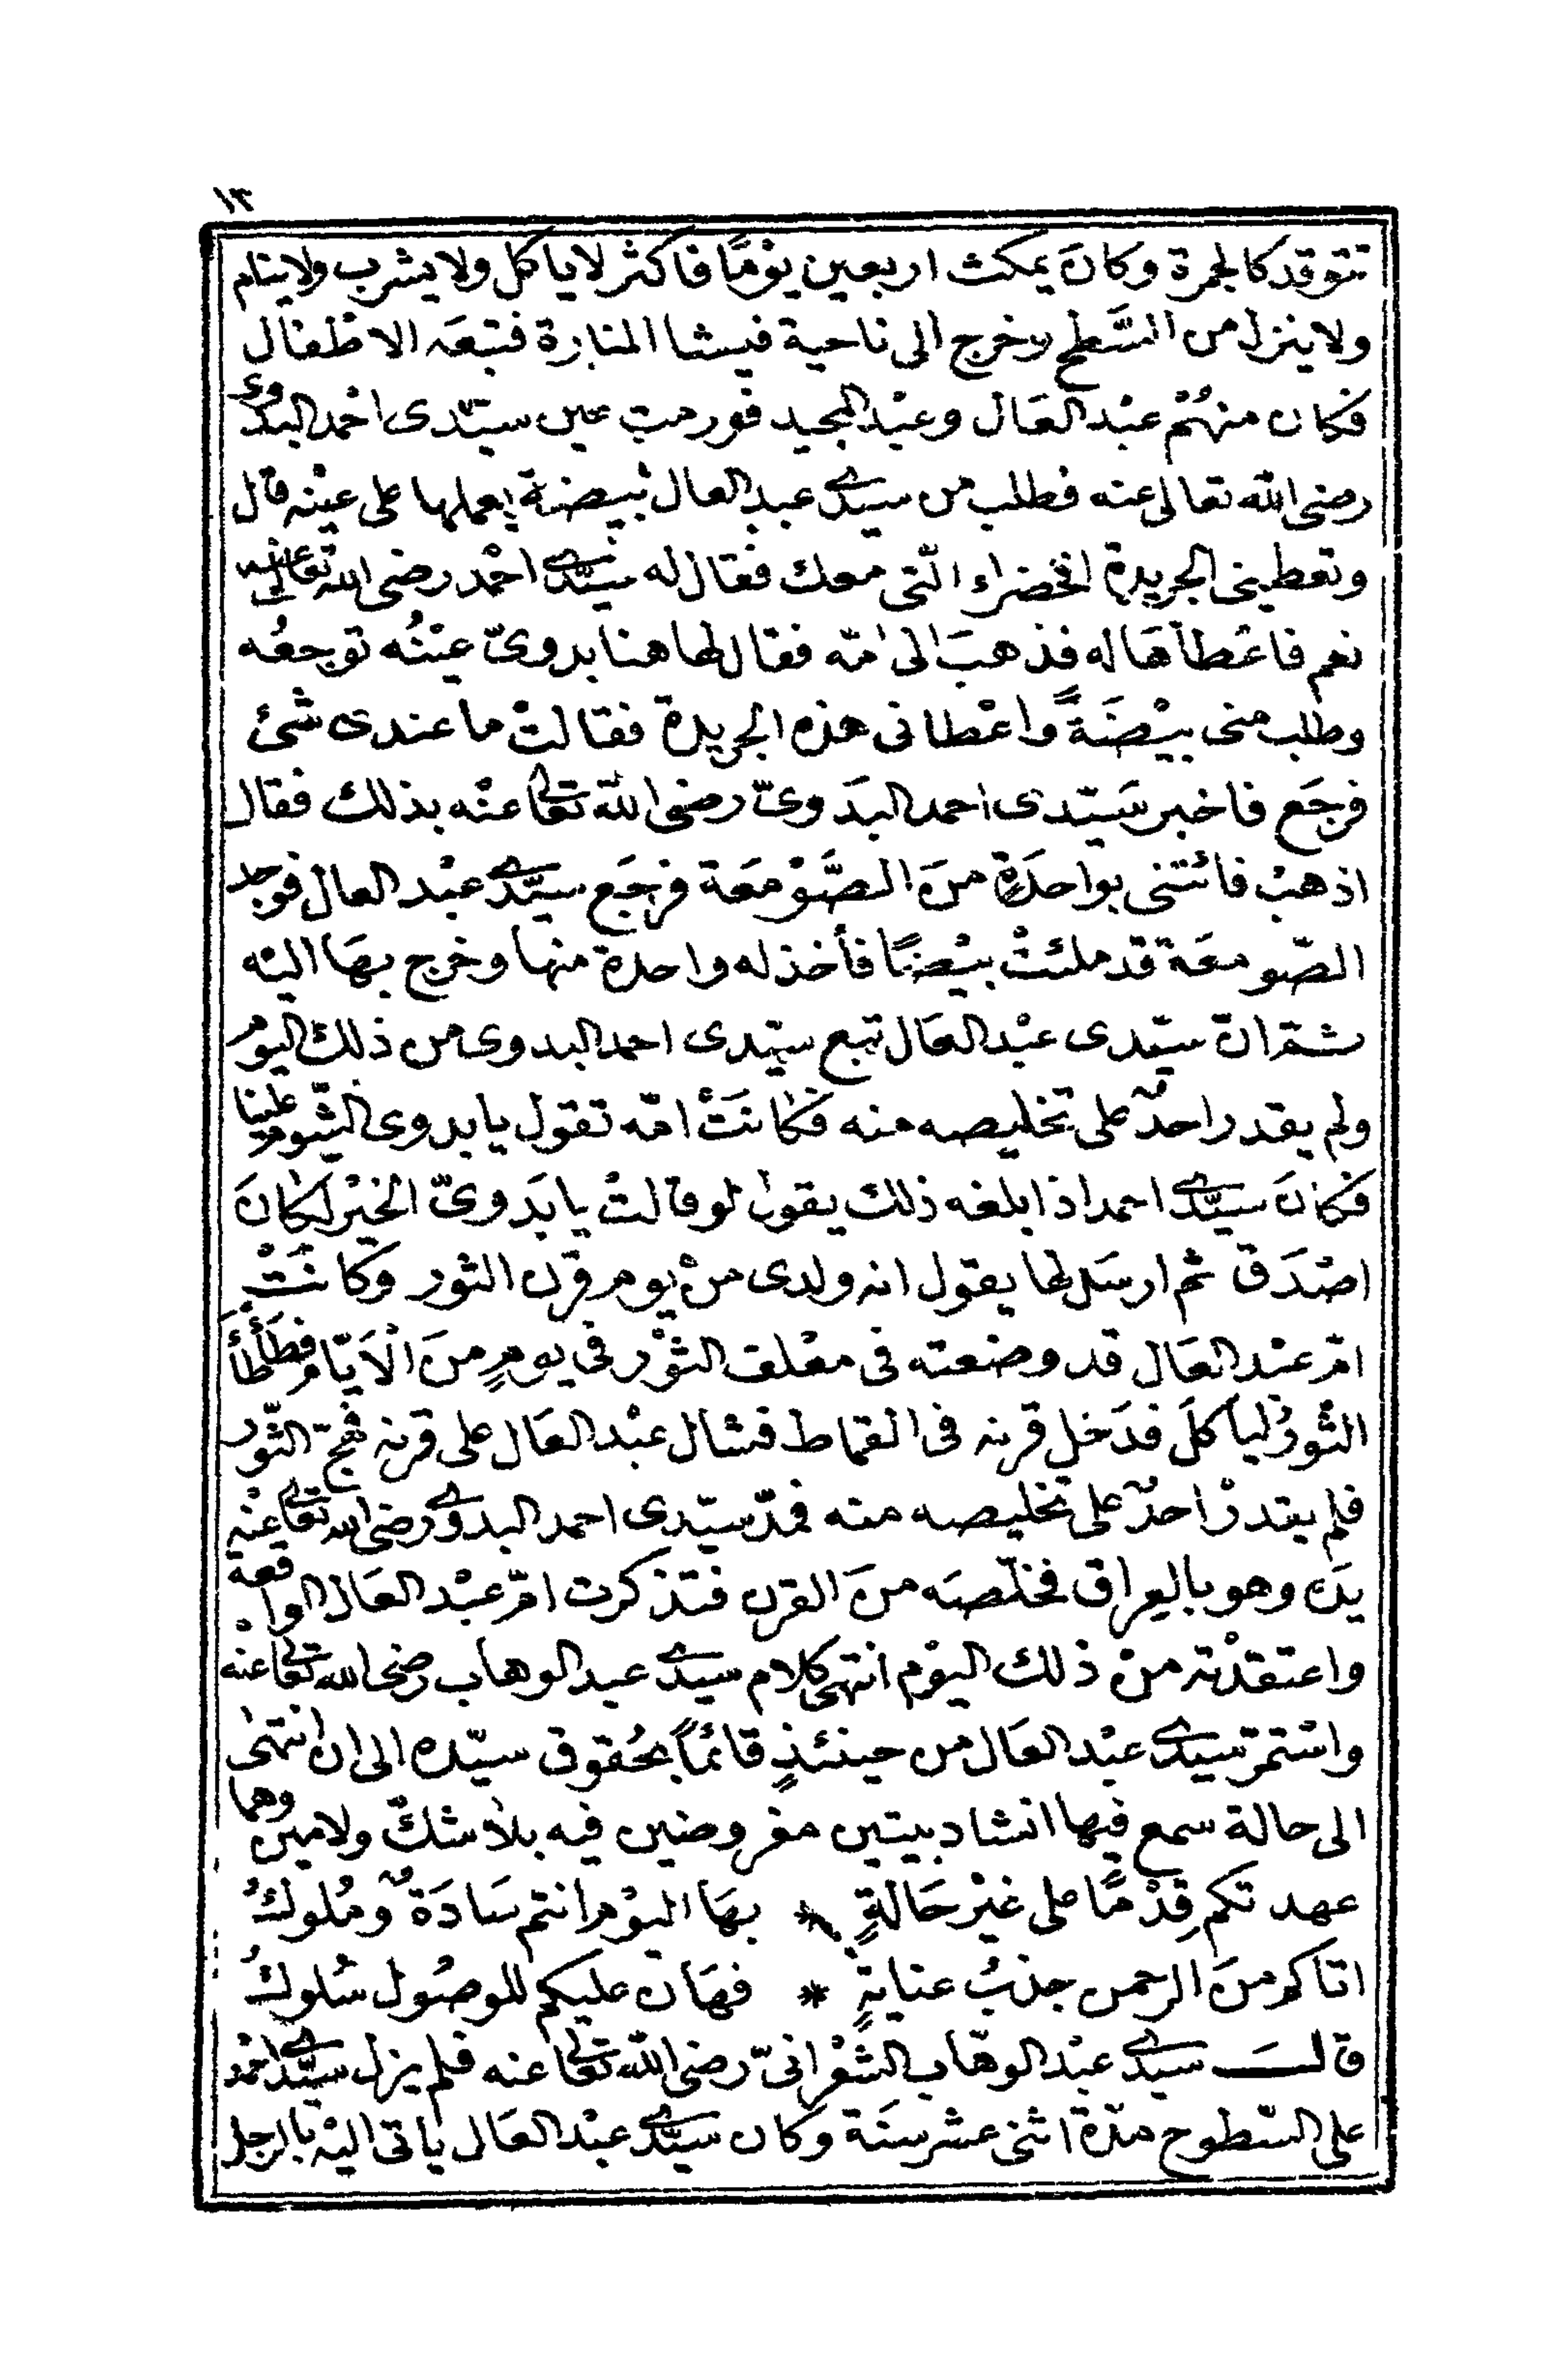 ١٣
تتوقد كالجمرة وكانَ يمكث اربعين يوْمًا فاكثر لا ياكل ولا يشرب ولا ينام
ولا ينزل من السَّطح وخرج الى ناحية فيشا المنارة فتبعَه الاطْفال
فكان منهُمْ عبْد العَال وعبْد المجيد فورمت عين سيّدى احْمد البدوى
رضى الله تعالى عنه فطلب من سيدى عبد العال بيضة يعملها على عيْنه قال
وتعطينى الجريدة الخضراء الّتى معك فقال له سيّدى احْمد رضى الله تعالى عنه
نعم فاعْطاهَا له فذهبَ الى امّه فقال لها هنا بدوىّ عيْنُه توجعُه
وطلب منى بيْضَةً واعْطانى هذه الجريدة فقالتْ ما عندى شئ
فرجَع فاخبر سَيّدى احمد البَدوىّ رضى الله تعالى عنْه بذلك فقال
اذهبْ فائتنى بواحدَةٍ منَ الصَّوْمعَة فرجَع سيّدى عبْد العال فوجد
الصّومعَة قد ملئتْ بيْضًا فأخذ له واحدة منها وخرج بهَا اليْه
ثمّ انّ سيّدى عبْد العَال تبع سيّدى احمد البدوى من ذلك اليوم
ولم يقدر احدٌ على تخليصه منه فكانَتْ امّه تقول يا بدوى الشّوم علينا
فكانَ سيّدى احمد اذا بلغه ذلك يقول لو قالتْ يا بَدوىّ الخيْر لكانَ
اصْدَق ثم ارسَل لها يقول انه ولدى منْ يوم قرن الثور وكانَتْ
امّ عبْد العَال قد وضعته فى معْلف الثوْر فى يومٍ منَ الْاَيّام فطَأْطَأَ
الثْورُ ليأكلَ فدَخل قرنه فى القماط فشال عبْد العَال على قرنه فهجّ الثّور
فلم يقدرْ احدٌ على تخليصه منه فمدّ سيّدى احمد البدوى رضى الله تعالى عنْه
يدَه وهو بالعِراق فخلّصَه منَ القرن فتذكرت امّ عبْد العَال الواقعة
واعتقدْته منْ ذلك اليوْم انتهى كلام سيدى عبد الوهاب رضى الله تعالى عنْه
واسْتمرّ سيدى عبْد العَال من حينئذٍ قائمًا بحُقوق سيّده الى ان انتهٰى
الى حالة سمع فيها انشاد بيتين مفروضين فيه بلا شكّ ولا مين وهما
عهدتكم قِدْمًا على غيْر حَالةٍ * بهَا اليوْم انتم سَادَةٌ ومُلوكُ
اتاكم منَ الرحمن جذبُ عنايةٍ * فهَان عليكم للوصُول سُلوكُ
قالـــَ سيدى عبْد الوهّاب الشعْرانىّ رضى الله تعالى عنه فلم يزل سيّدى احْمد
على السّطوح مدّة اثنى عشر سنَة وكان سيّدى عبْد العَال ياتى اليْه بالرجل